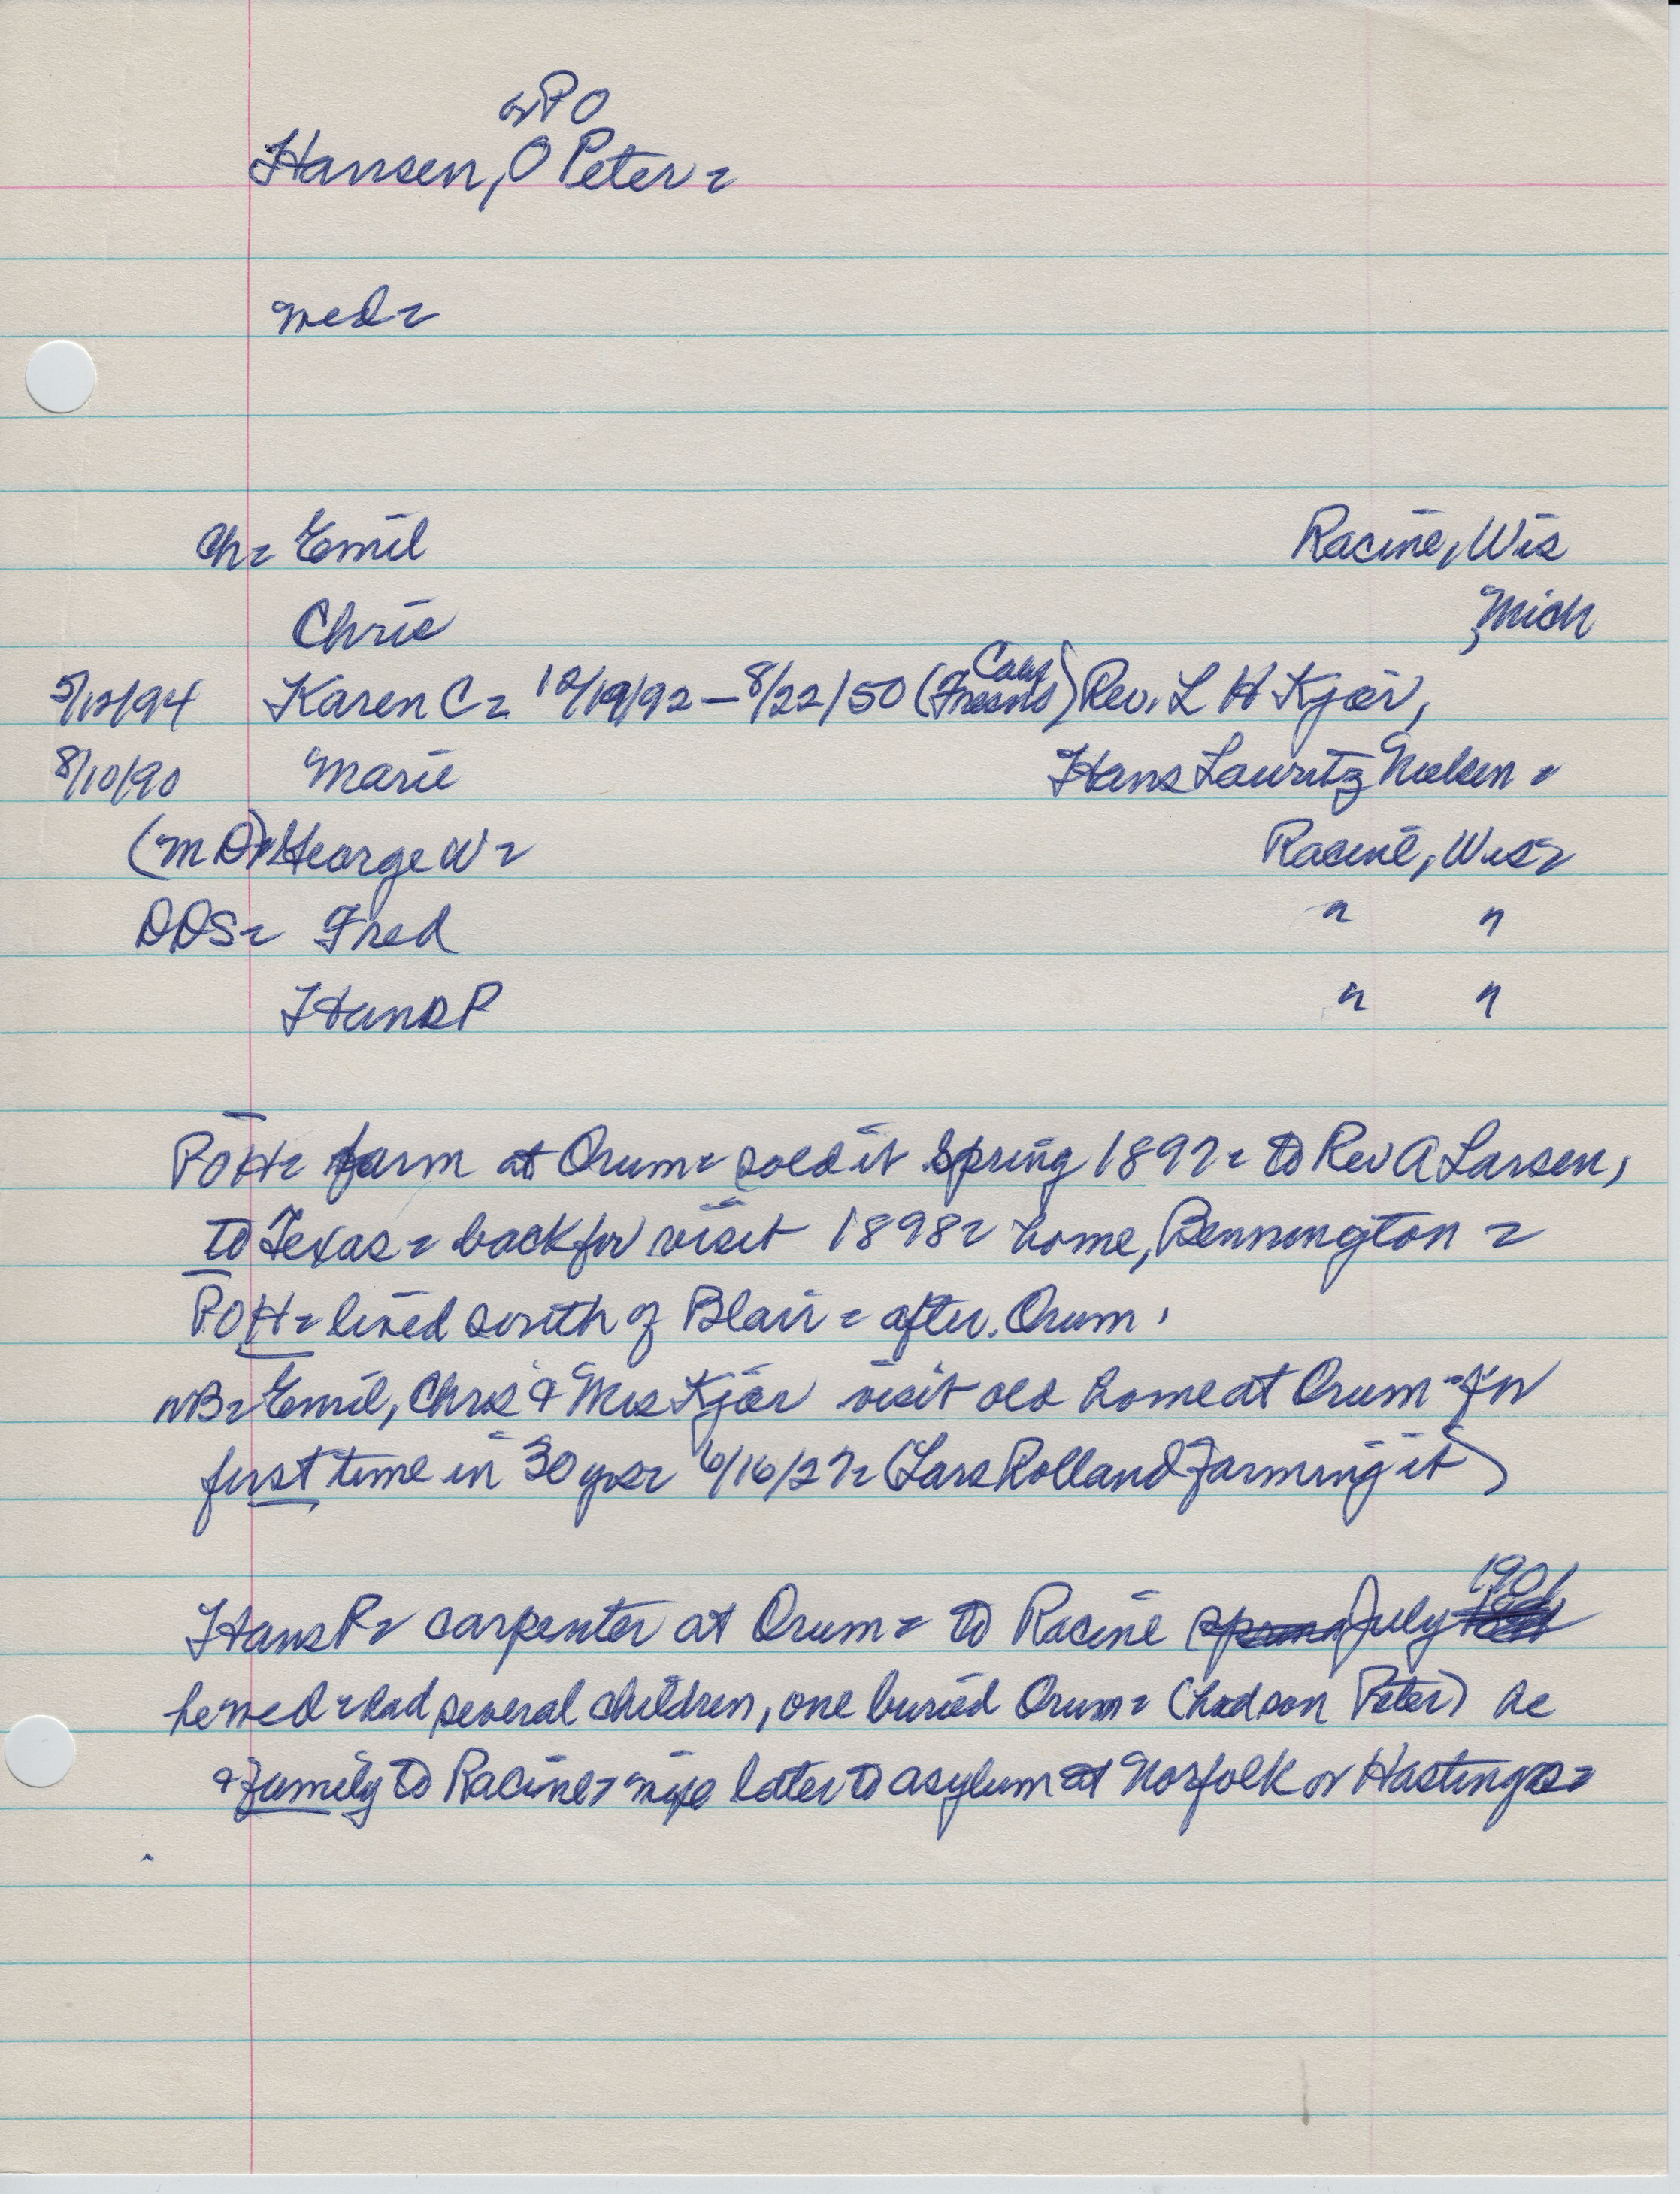 or P O
Hansen, O Peter =
med =
Ch = Emil Racine, Wis
Chris Mich
5/12/94 Karen C = 12/19/92 – 8/22/50 (Fresno Calif) Rev. L H Kjær,
8/10/90 Marie Hans Lauritz Nielsen =
(MD) George W = Racine, Wis =
DDS = Fred " "
Hans P " "
POH = farm at Orum = sold it Spring 1897 = to Rev A Larsen,
to Texas = back for visit 1898 = home, Bennington =
POH = lived south of Blair = after Orum.
NB = Emil, Chris & Mrs Kjær visit old home at Orum – for
first time in 30 yrs = 6/16/27 = (Lars Rolland farming it)
Hans P = carpenter at Orum = to Racine spring July 1901
he med = had several children, one buried Orum = (had son Peter) he
& family to Racine = wife later to asylum at Norfolk or Hastings =